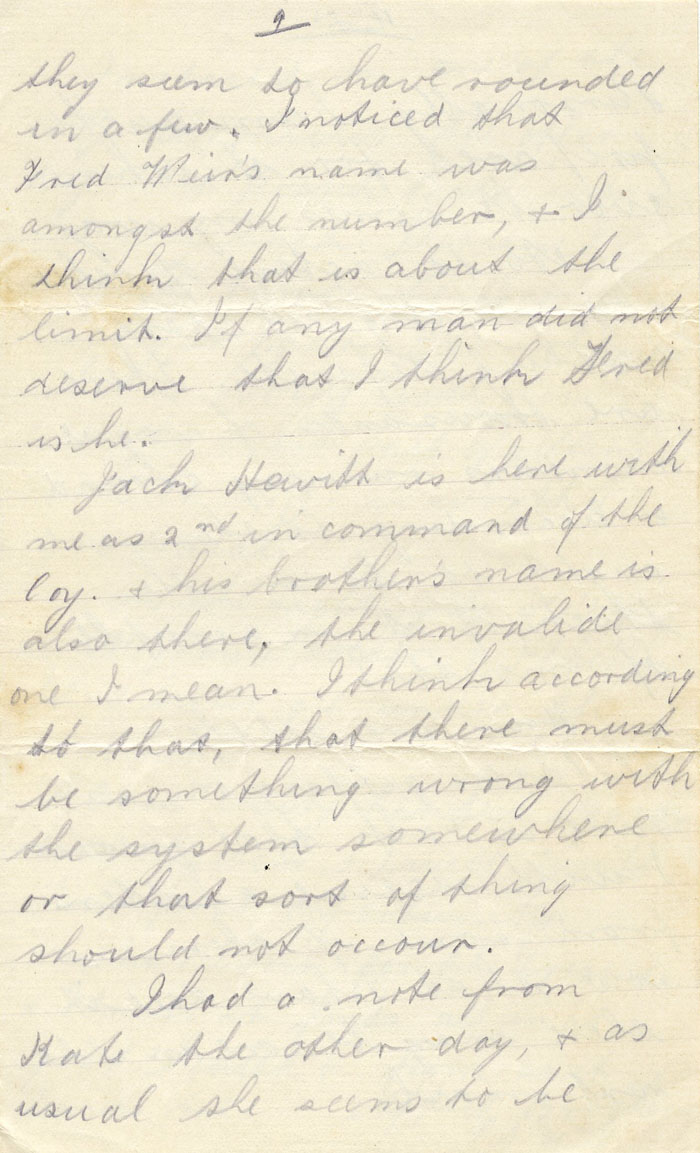 9
they seem to have rounded
in a few. I noticed that
Fred Weir's name was
amongst the number, + I
think that is about the
limit. If any man did not
deserve that I think Fred
is he.
Jack Hewitt is here with
me as 2nd in command of the
Coy. + his brother's name is
also there, the invalide
one I mean. I think according
to that, that there must
be something wrong with
the system somewhere
or that sort of thing
should not occour.
I had a note from
Kate the other day, + as
usual she seems to be